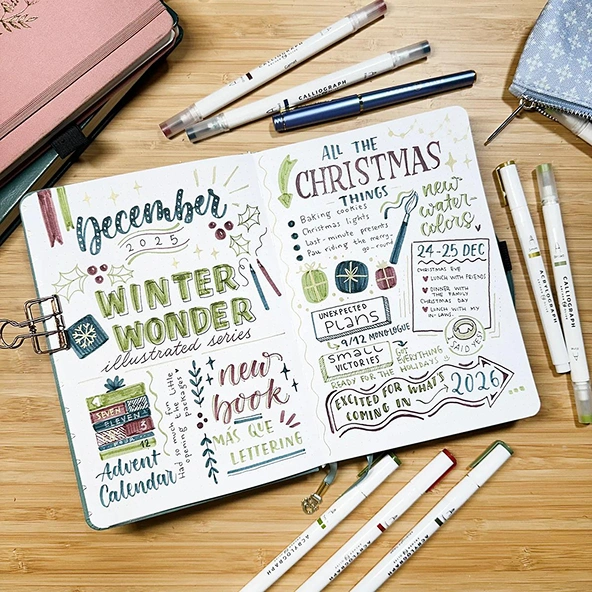 December
2025
WINTER
WONDER
illustrated series
SEVEN
ELEVEN
3
12
Advent
Calendar
Had so much fun little
opening the packages
new
book
MÁS QUE
LETTERING
ALL THE
CHRISTMAS
THINGS
Baking cookies
Christmas lights
Last-minute presents
Pau riding the merry-
go-round
new
water-
colors
24-25 DEC
CHRISTMAS EVE
LUNCH WITH FRIENDS
DINNER WITH
THE FAMILY
CHRISTMAS DAY
LUNCH WITH MY
IN-LAWS
I SAID YES!
UNEXPECTED
PLANS
9/12 MONOLOGUE
SMALL
VICTORIES
GOT
EVERYTHING
READY FOR THE HOLIDAYS
EXCITED FOR WHAT'S
COMING IN
2026
CALLIOGRAPH
CALLIOGRAPH
ACRYLOGRAPH
ACRYLOGRAPH
ACRYLOGRAPH
ACRYLOGRAPH